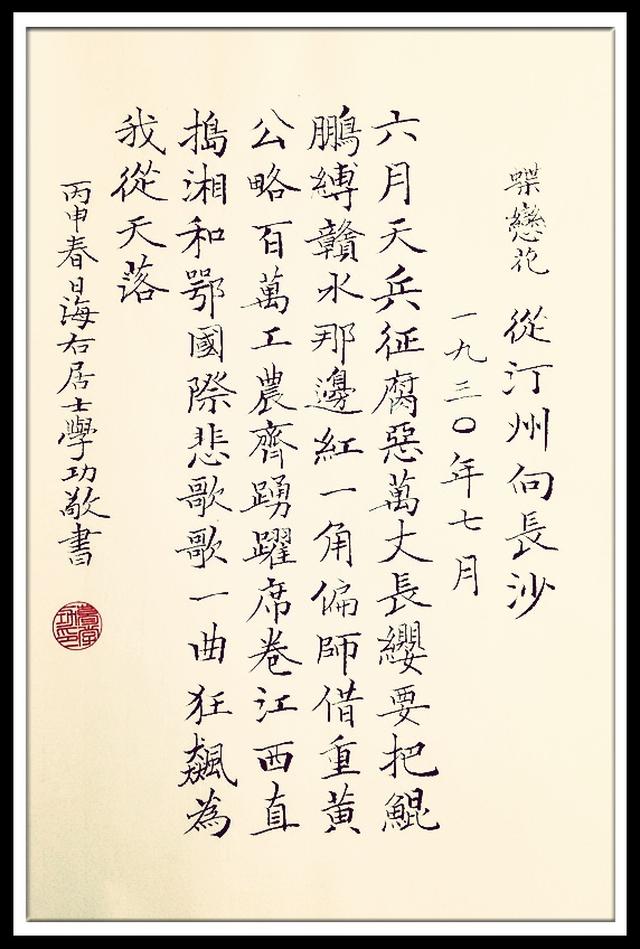 蝶戀花 從汀州向長沙
一九三〇年七月
六月天兵征腐惡萬丈長纓要把鯤
鵬縛贛水那邊紅一角偏師借重黃
公略百萬工農齊踴躍席卷江西直
搗湘和鄂國際悲歌歌一曲狂飆為
我從天落
丙申春日海右居士學功敬書